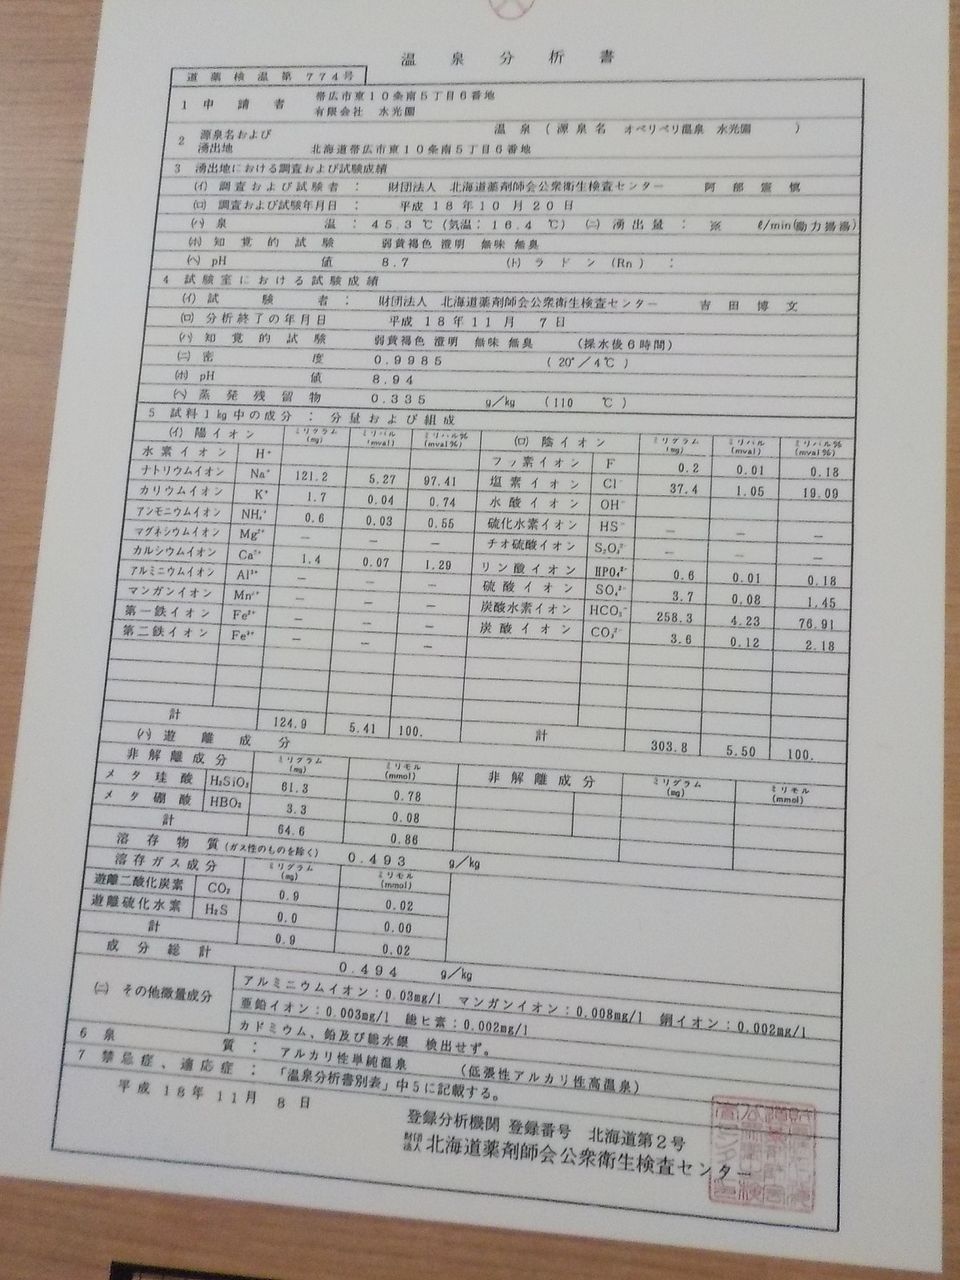 温泉分析書
道薬検温第774号
1 申請者 帯広市東10条南5丁目6番地
有限会社 水光園
2 源泉名および湧出地 温泉 (源泉名 オベリベリ温泉 水光園 )
北海道帯広市東10条南5丁目6番地
3 湧出地における調査および試験成績
(イ) 調査および試験者 : 財団法人 北海道薬剤師会公衆衛生検査センター 阿部
(ロ) 調査および試験年月日 : 平成18年10月20日
(ハ) 泉温 : 45.3℃ (気温:16.4℃) (ニ) 湧出量 : ※ ℓ/min(動力揚湯)
(ホ) 知覚的試験 弱黄褐色 澄明 無味 無臭
(ヘ) pH値 8.7 (ト) ラドン (Rn) :
4 試験室における試験成績
(イ) 試験者 : 財団法人 北海道薬剤師会公衆衛生検査センター 吉田博文
(ロ) 分析終了の年月日 平成18年11月 7日
(ハ) 知覚的試験 弱黄褐色 澄明 無味 無臭 (採水後6時間)
(ニ) 密度 0.9985 (20°/4℃)
(ホ) pH値 8.94
(ヘ) 蒸発残留物 0.335 g/kg (110 ℃)
5 試料1kg中の成分 : 分量および組成
(イ) 陽イオン ミリグラム(mg) ミリバル(mval) ミリバル%(mval%) (ロ) 陰イオン ミリグラム(mg) ミリバル(mval) ミリバル%(mval%)
水素イオン H⁺ フッ素イオン F 0.2 0.01 0.18
ナトリウムイオン Na⁺ 121.2 5.27 97.41 塩素イオン Cl⁻ 37.4 1.05 19.09
カリウムイオン K⁺ 1.7 0.04 0.74 水酸イオン OH⁻
アンモニウムイオン NH₄⁺ 0.6 0.03 0.55 硫化水素イオン HS⁻ — — —
マグネシウムイオン Mg²⁺ — — — チオ硫酸イオン S₂O₃²⁻ — — —
カルシウムイオン Ca²⁺ 1.4 0.07 1.29 リン酸イオン HPO₄²⁻ 0.6 0.01 0.18
アルミニウムイオン Al³⁺ — — — 硫酸イオン SO₄²⁻ 3.7 0.08 1.45
マンガンイオン Mn²⁺ — — — 炭酸水素イオン HCO₃⁻ 258.3 4.23 76.91
第一鉄イオン Fe²⁺ — — — 炭酸イオン CO₃²⁻ 3.6 0.12 2.18
第二鉄イオン Fe³⁺ — — —
計 124.9 5.41 100. 計 303.8 5.50 100.
(ハ) 遊離成分
非解離成分 ミリグラム(mg) ミリモル(mmol) 非解離成分 ミリグラム(mg) ミリモル(mmol)
メタ珪酸 H₂SiO₃ 61.3 0.78
メタ硼酸 HBO₂ 3.3 0.08
計 64.6 0.86
溶存物質(ガス性のものを除く) 0.493 g/kg
溶存ガス成分 ミリグラム(mg) ミリモル(mmol)
遊離二酸化炭素 CO₂ 0.9 0.02
遊離硫化水素 H₂S 0.0 0.00
計 0.9 0.02
成分総計 0.494 g/kg
(ニ) その他微量成分 アルミニウムイオン:0.03mg/l マンガンイオン:0.008mg/l 銅イオン:0.002mg/l
亜鉛イオン:0.003mg/l 総ヒ素:0.002mg/l
カドミウム、鉛及び総水銀 検出せず。
6 泉質 : アルカリ性単純温泉 (低張性アルカリ性高温泉)
7 禁忌症、適応症 : 「温泉分析書別表」中5に記載する。
平成18年11月 8日
登録分析機関 登録番号 北海道第2号
財団法人 北海道薬剤師会公衆衛生検査センター